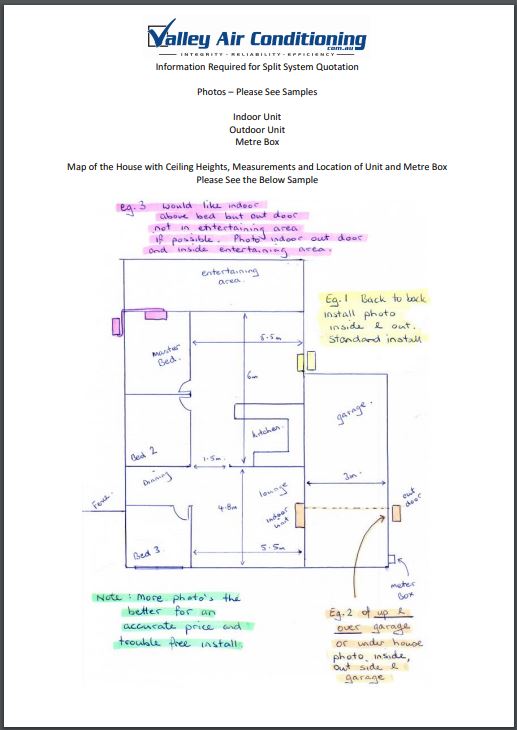 Valley Air Conditioning
.com.au
INTEGRITY - RELIABILITY - EFFICIENCY
Information Required for Split System Quotation
Photos – Please See Samples
Indoor Unit
Outdoor Unit
Metre Box
Map of the House with Ceiling Heights, Measurements and Location of Unit and Metre Box
Please See the Below Sample
eg. 3 Would like indoor
above bed but out door
not in entertaining area
if possible. Photo indoor out door
and inside entertaining area.
entertaining
area.
Eg. 1 Back to back
install photo
inside & out.
Standard install
5.5m
master
Bed.
6m
garage.
kitchen.
Bed 2
1.5m.
Dinning
3m.
lounge
Fence.
4.8m
indoor
unit
out
door
Bed 3
5.5m
meter
Box
Note: More photo's the
better for an
accurate price and
trouble free install
Eg. 2 of up &
over garage
or under house
photo inside,
out side &
garage